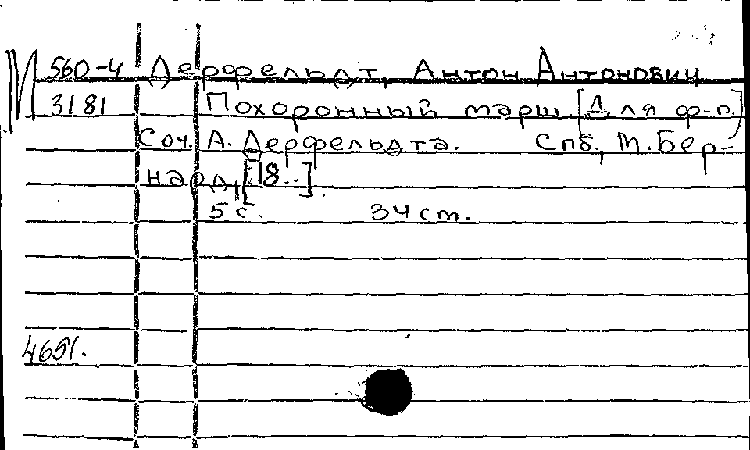 М 560-4 Дерфельдт, Антон Антонович
3181 Похоронный марш [Для ф-п.]
Соч. А. Дерфельдта. Спб., М. Бер-
нард, [18..].
5 с. 34 cm.
4651.